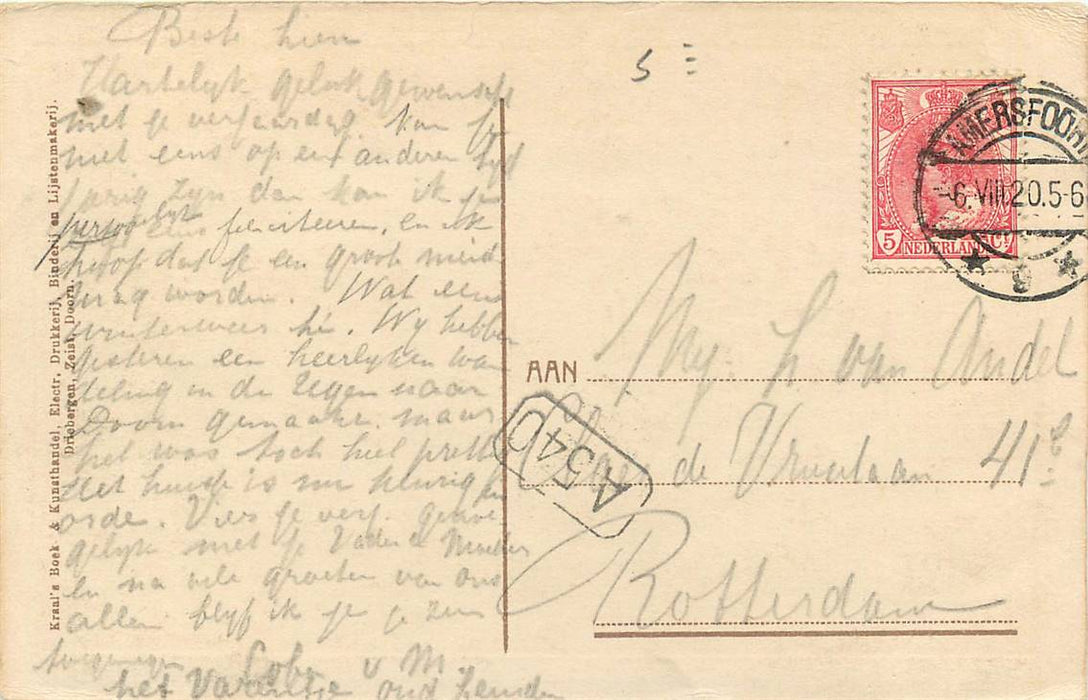 Beste Lien
Hartelyk geluk gewenscht
met je verjaardag. Nou jy
niet eens op een anderen tyd
jarig zyn dan kon ik je
persoonlyk eens feliciteeren, en ik
hoop dat je een groote meid
mag worden. Wat een
winterweer hè. Wy hebben
gisteren een heerlyken wan
deling in de regen naar
Doorn gemaakt. maar
het was toch heel prettig
Het huisje is nu keurig in
orde. Vier je verj.
gelyk met je Vader en Moeder
En na vele groeten van ons
allen blyf ik je je zeer
toegenegen v M.
het Vaantje oud Leusden
Kraal's Boek- & Kunsthandel, Electr. Drukkerij, Binderij en Lijstenmakerij.
Driebergen, Zeist, Doorn.
S
5 NEDERLAND Ct
AMERSFOORT
-6.VIII.20.5-6
9
AAN
Mej. L van Andel
de Vrieslaan 41
A 540
Rotterdam